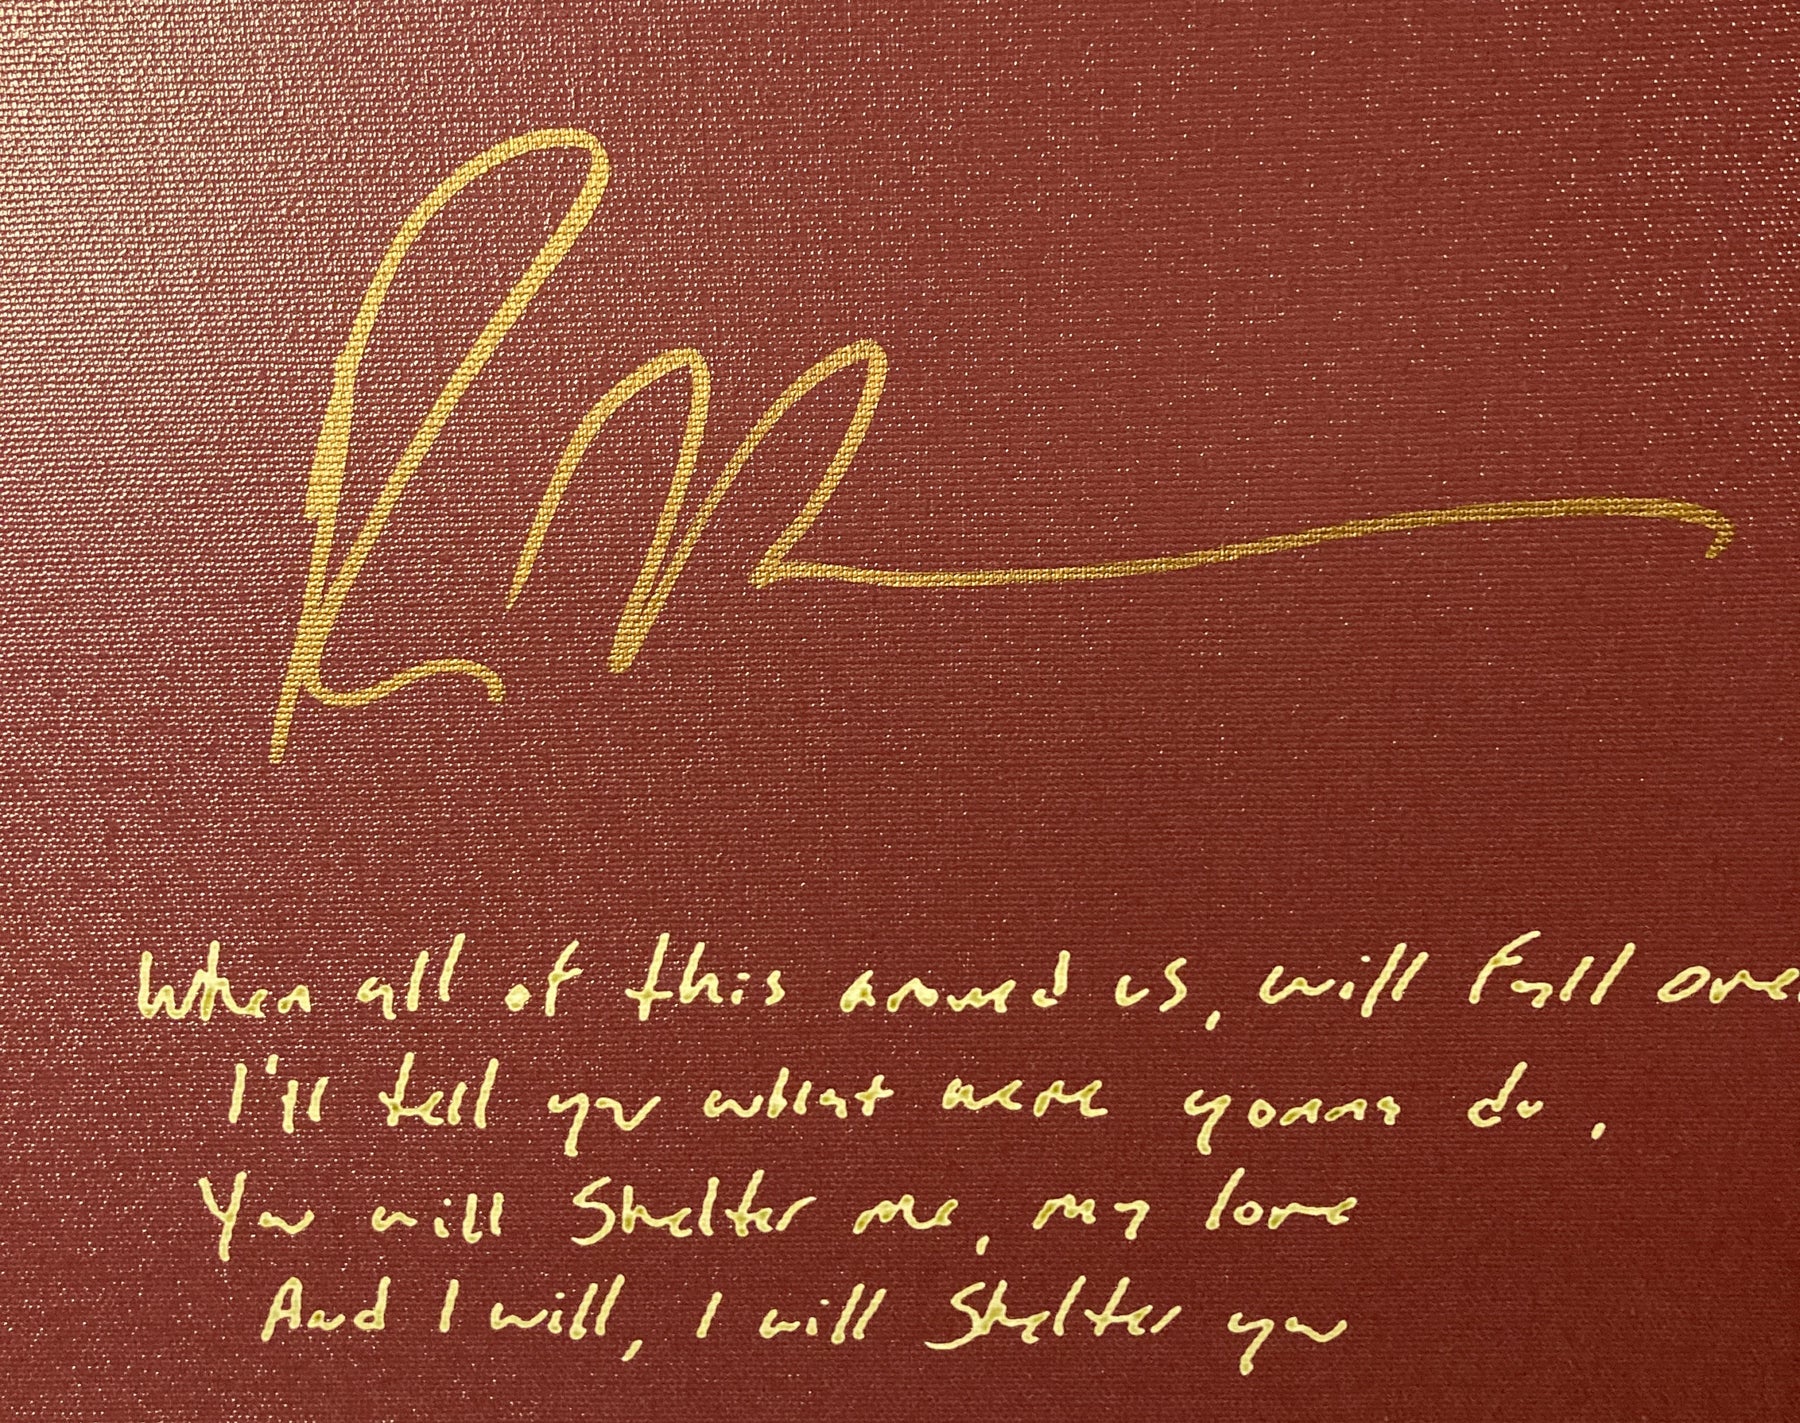 When all of this around us, will fall over
I'll tell you what were gonna do,
You will Shelter me, my love
And I will, I will Shelter you